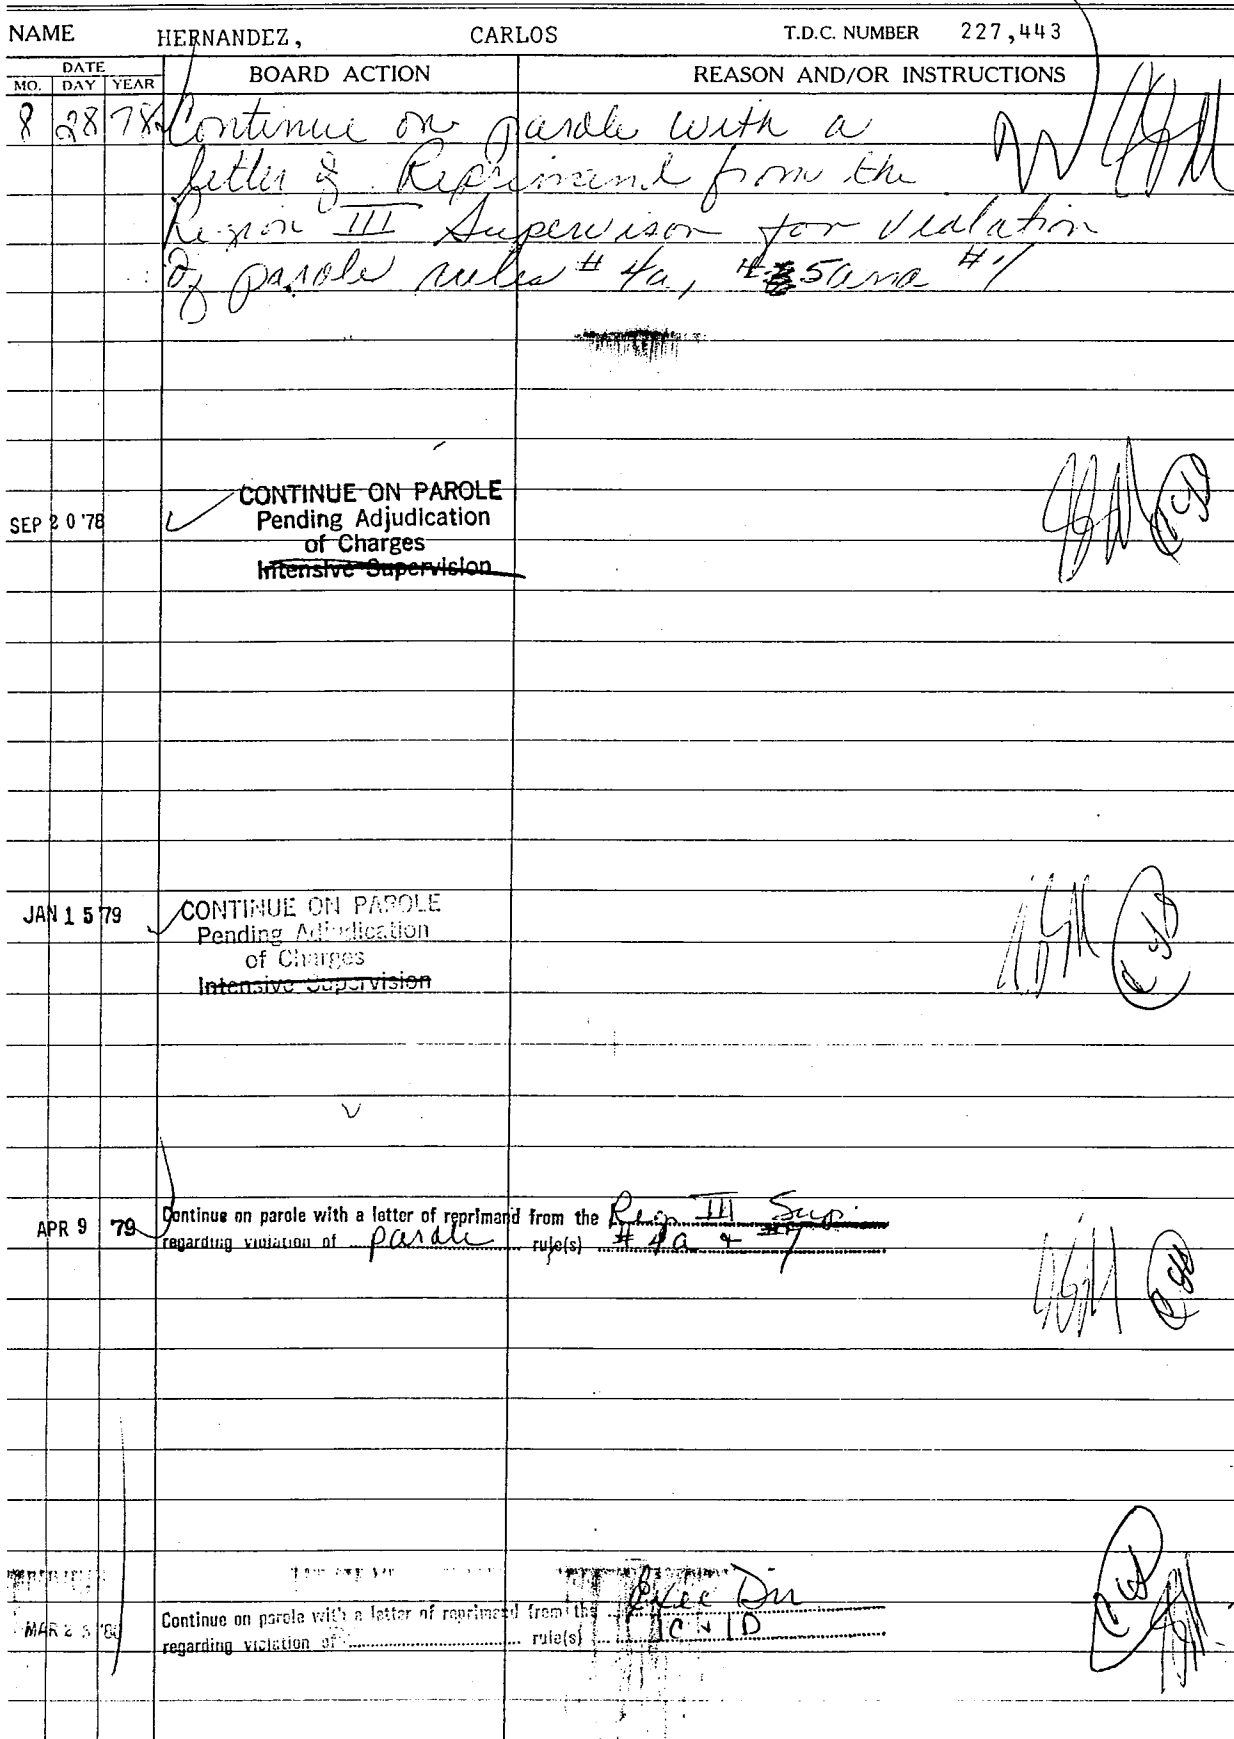 NAME HERNANDEZ, CARLOS T.D.C. NUMBER 227,443
DATE
MO. DAY YEAR BOARD ACTION REASON AND/OR INSTRUCTIONS
8 28 78 Continue on parole with a
letter of Reprimand from the
Region III Supervison for violation
of parole rules # 4a, # 5 and #
CONTINUE ON PAROLE
SEP 20 '78 Pending Adjudication
of Charges
Intensive Supervision
JAN 15 79 CONTINUE ON PAROLE
Pending Adjudication
of Charges
Intensive Supervision
APR 9 79 Continue on parole with a letter of reprimand from the Reg. III Sup.
regarding violation of parole rule(s) # 4a & #7
MAR '80 Continue on parole with a letter of reprimand from the Exec Dir
regarding violation of rule(s) 1C & 1D